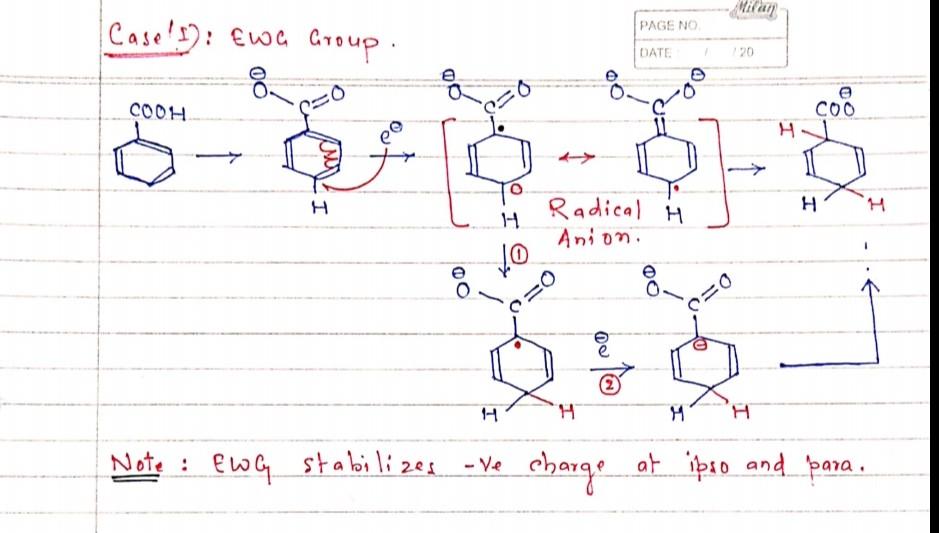 Milan
PAGE NO.
DATE / /20
Case'I): EWG Group.
COOH
⊖O C=O
H
e⊖
⊖O C=O
H
⊖O C O⊖
H
Radical
Anion.
COO⊖
H
H H
①
⊖O C=O
H H
e⊖
②
⊖O C=O
⊖
H H
Note : EWG stabilizes -ve charge at ipso and para.